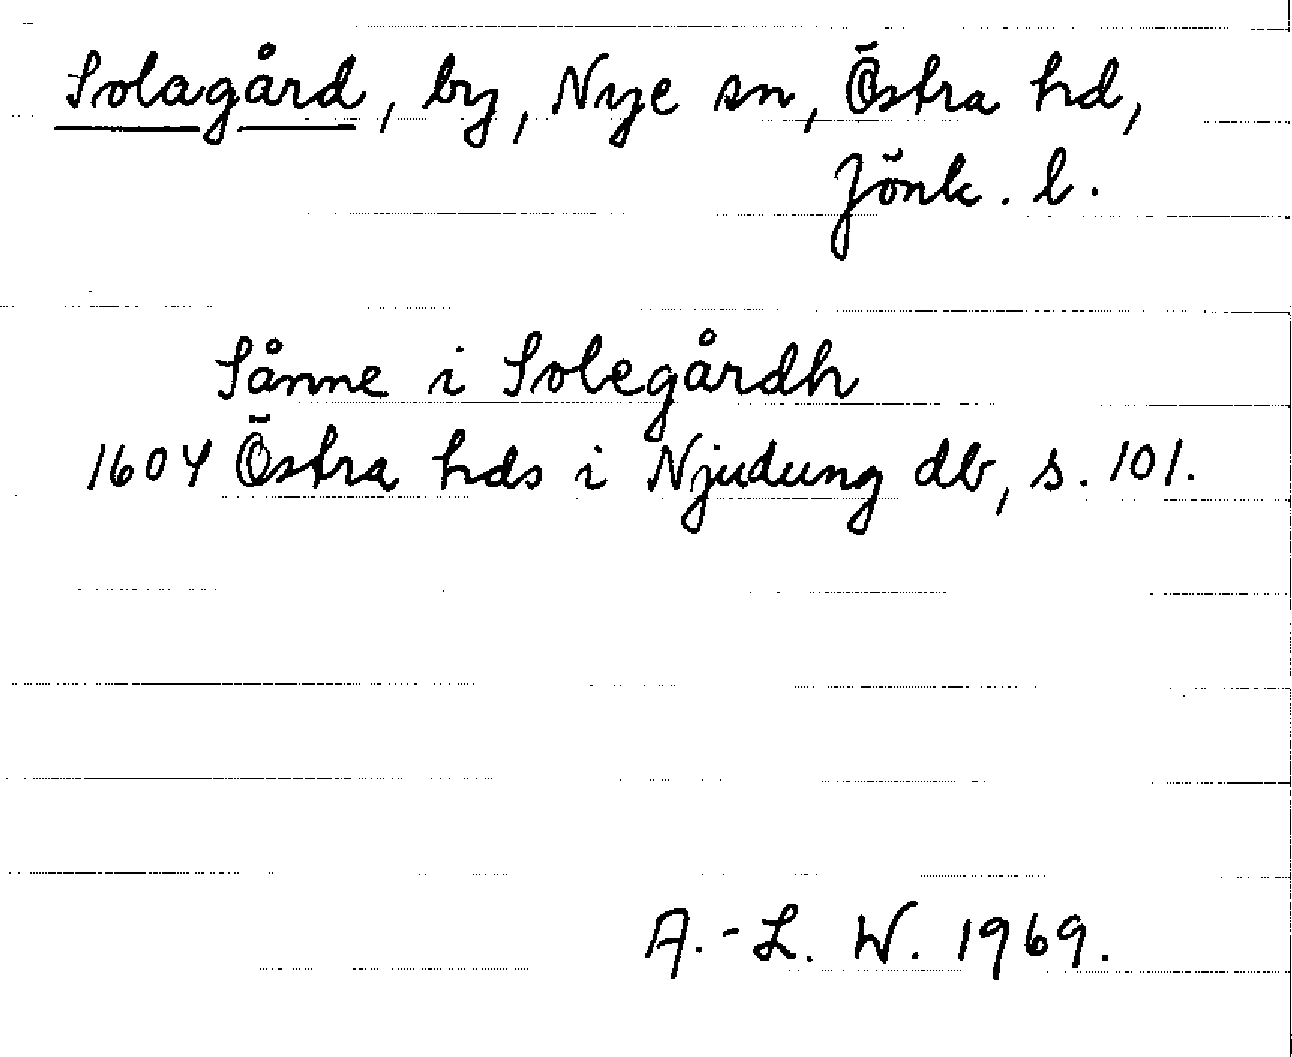 Solagård, by, Nye sn, Östra hd,
Jönk. l.
Sånne i Solegårdh
1604 Östra hds i Njudung db, s. 101.
A.-L. W. 1969.